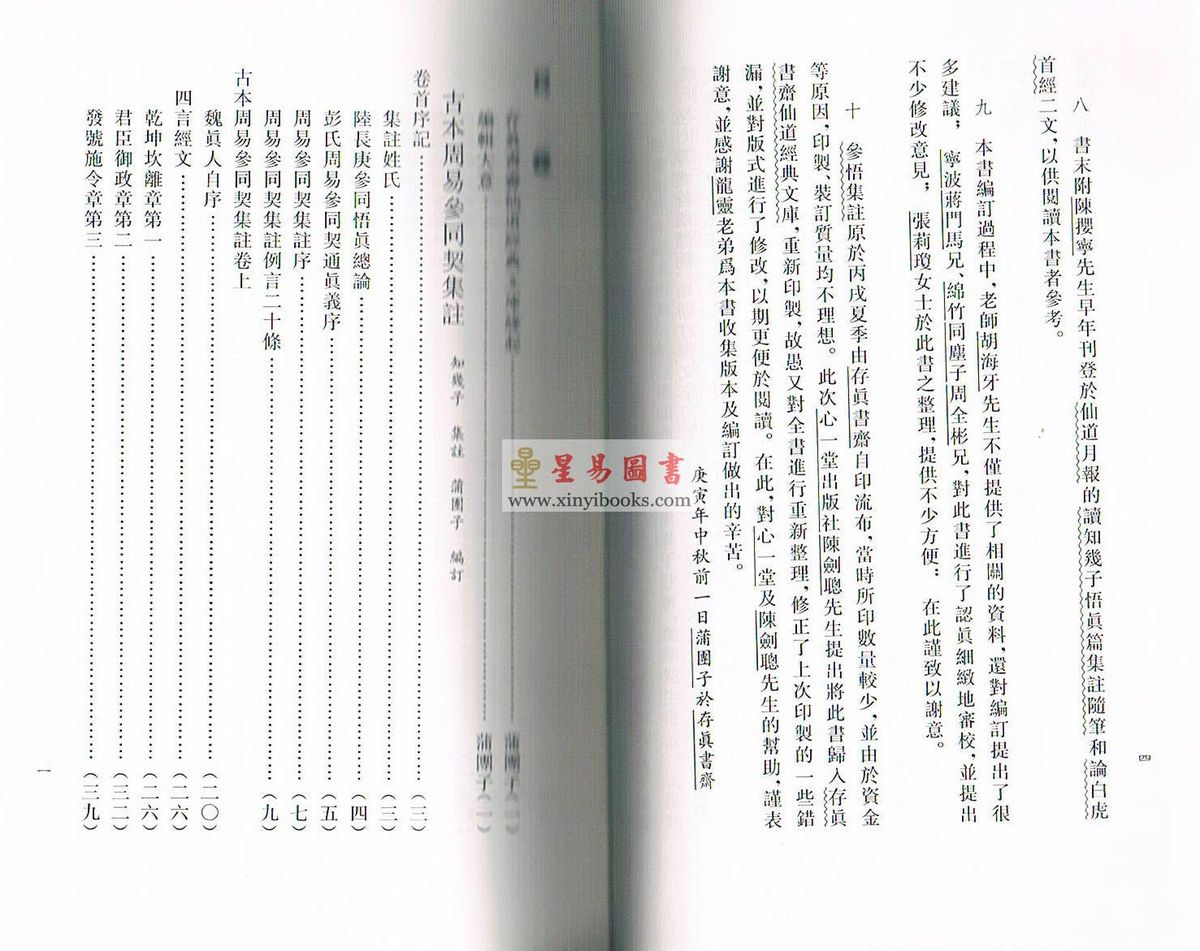 八　書末附陳攖寧先生早年刊登於仙道月報的讀知幾子悟眞篇集註隨筆和論白虎
首經二文，以供閱讀本書者參考。
九　本書編訂過程中，老師胡海牙先生不僅提供了相關的資料，還對編訂提出了很
多建議；　寧波蔣門馬兄、綿竹同塵子周全彬兄，對此書進行了認眞細緻地審校，並提出
不少修改意見；　張莉瓊女士於此書之整理，提供不少方便：　在此謹致以謝意。
十　參悟集註原於丙戌夏季由存眞書齋自印流布，當時所印數量較少，並由於資金
等原因，印製、裝訂質量均不理想。此次心一堂出版社陳劍聰先生提出將此書歸入存眞
書齋仙道經典文庫，重新印製，故愚又對全書進行重新整理，修正了上次印製的一些錯
漏，並對版式進行了修改，以期更便於閱讀。在此，對心一堂及陳劍聰先生的幫助，謹表
謝意，並感謝龍靈老弟爲本書收集版本及編訂做出的辛苦。
庚寅年中秋前一日蒲團子於存眞書齋
四
蒲團子（一）
編輯大意……蒲團子（一）
古本周易參同契集註　知幾子　集註　蒲團子　編訂
卷首序記……（三）
集註姓氏……（三）
陸長庚參同悟眞總論……（四）
彭氏周易參同契通眞義序……（五）
周易參同契集註序……（七）
周易參同契集註例言二十條……（九）
古本周易參同契集註卷上
魏眞人自序……（二〇）
四言經文……（二六）
乾坤坎離章第一……（二六）
君臣御政章第二……（三二）
發號施令章第三……（三九）
一
星易圖書
www.xinyibooks.com